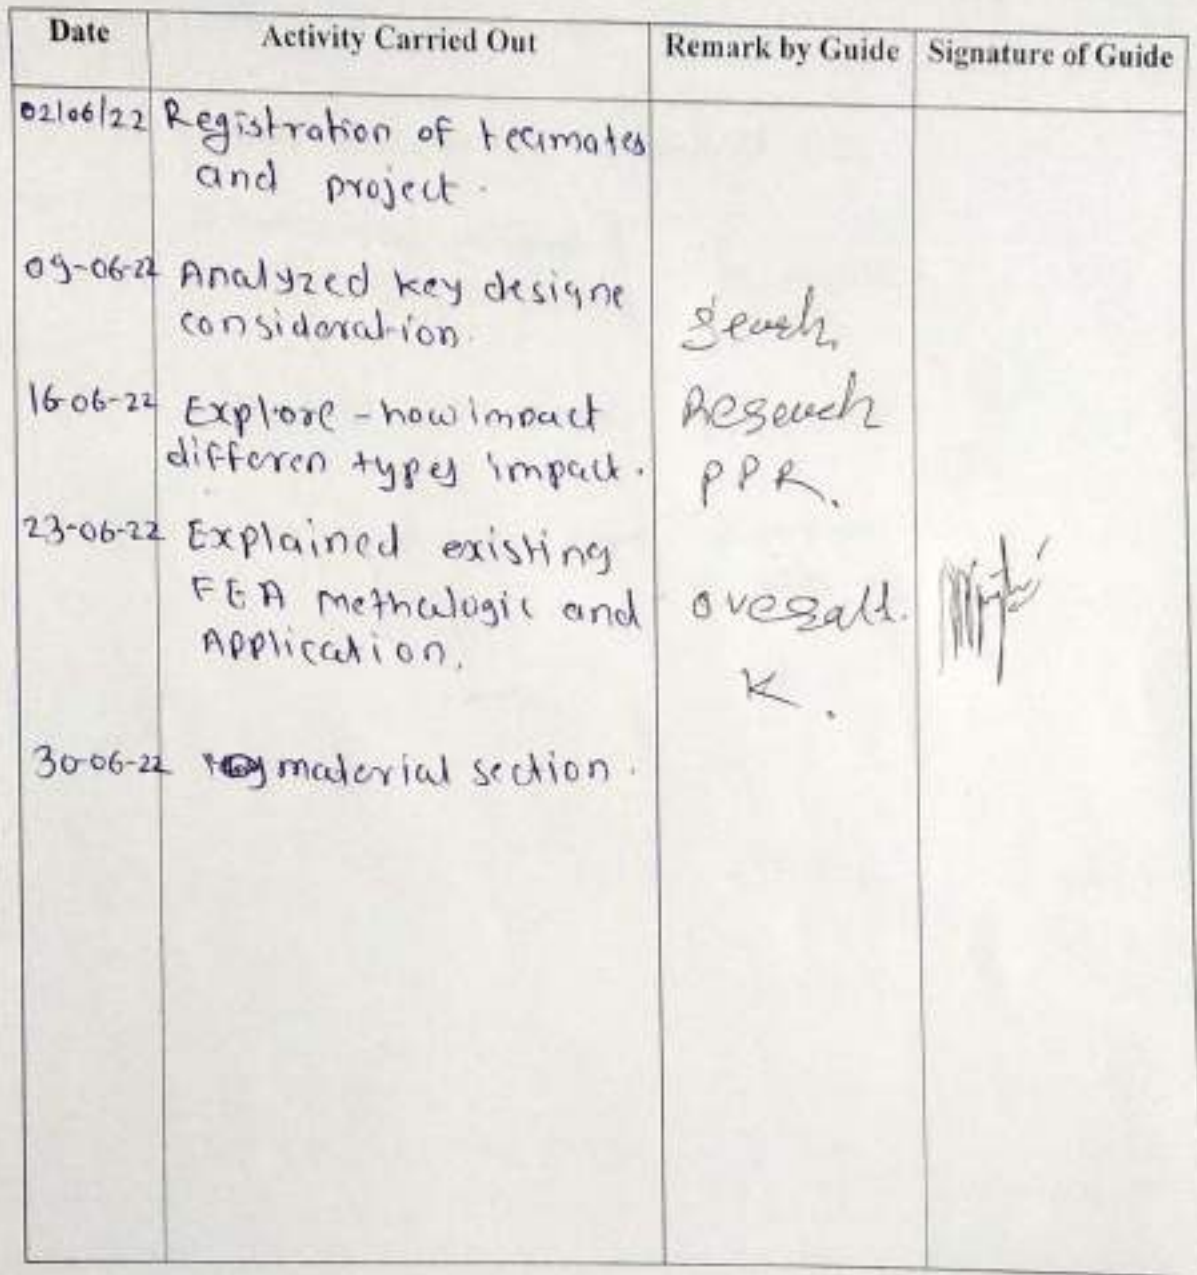 Date Activity Carried Out Remark by Guide Signature of Guide
02/06/22 Registration of teamates
and project.
09-06-22 Analyzed key designe
consideration.
Search
16-06-22 Explore - how impact Reseach
differen types impact. PPR.
23-06-22 Explained existing
FEA methalogic and overall.
Application. K.
30-06-22 material section.